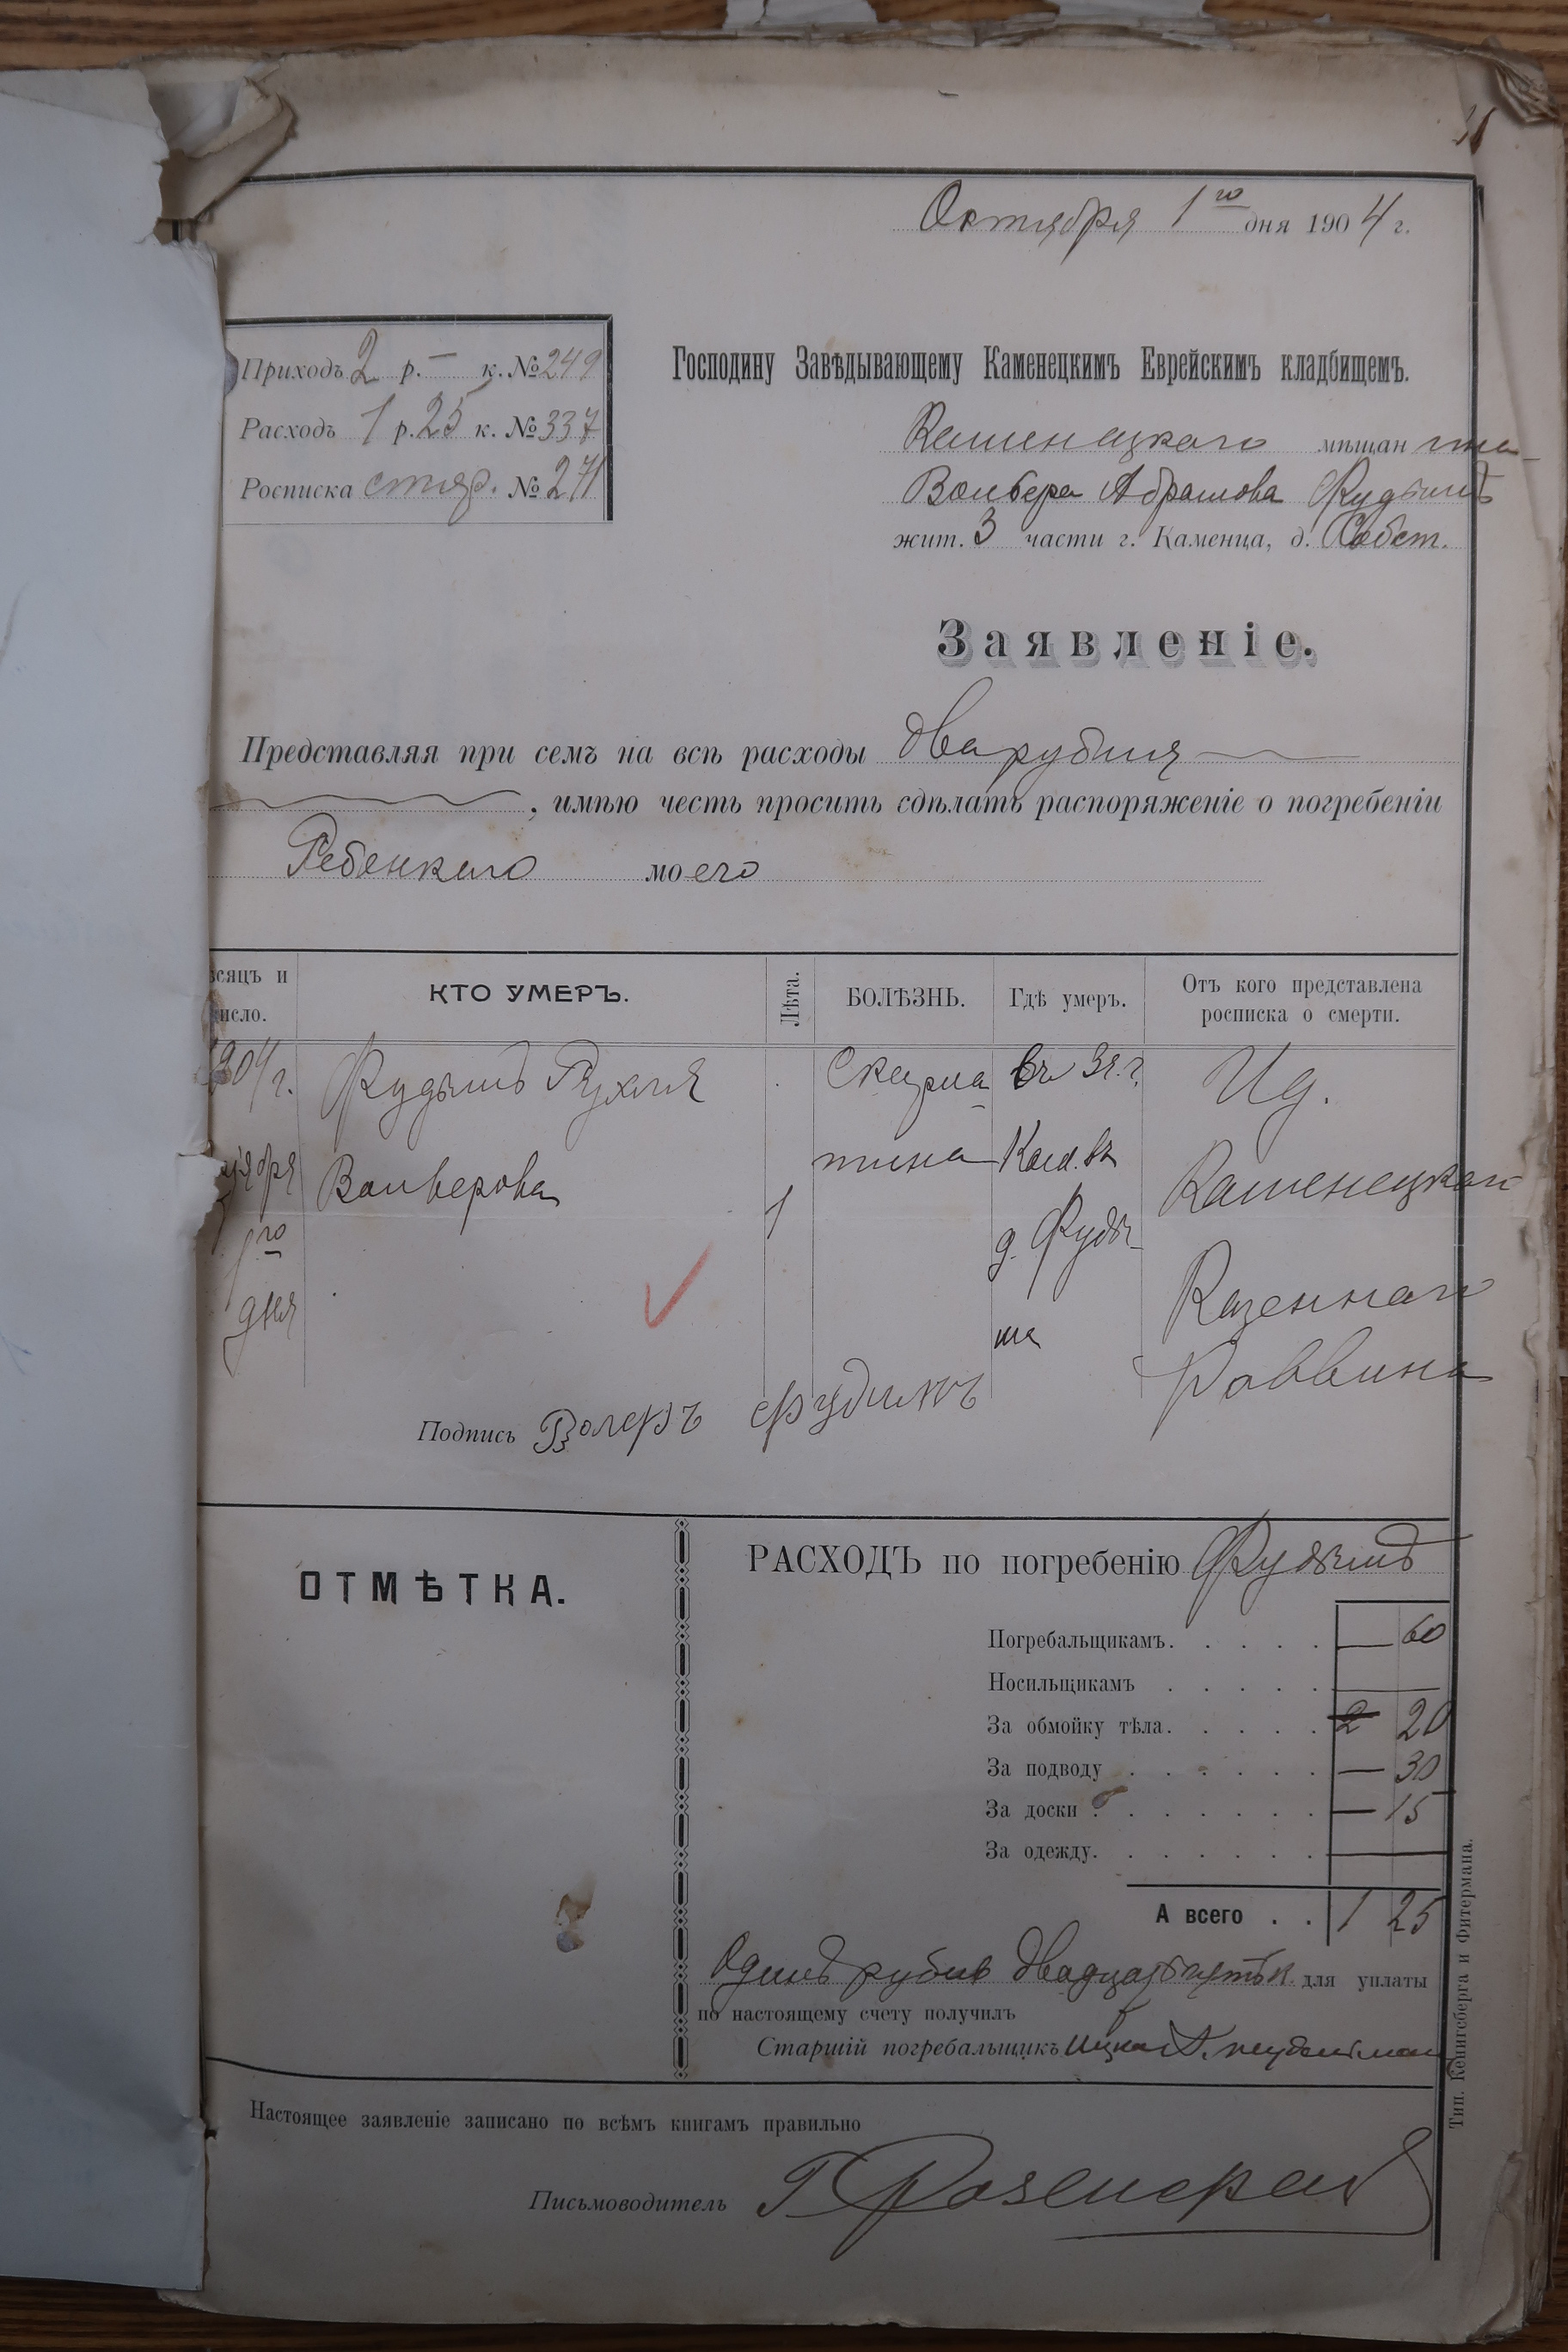 Октября 1го дня 1904 г.
Приходъ 2 р. — к. № 249
Расходъ 1 р. 25 к. № 337
Росписка стар. № 271
Господину Завѣдывающему Каменецкимъ Еврейскимъ кладбищемъ.
Каменецкаго мѣщан
Вольвера Абрамова Фудымъ
жит. 3 части г. Каменца, д. Собст.
Заявленіе.
Представляя при семъ на всѣ расходы два рубля —
, имѣю честь просить сдѣлать распоряженіе о погребеніи
Ребенкаго моего
сяцъ и
исло.
КТО УМЕРЪ.
Лѣта.
БОЛѢЗНЬ.
Гдѣ умеръ.
Отъ кого представлена
росписка о смерти.
904 г.
ября
1го
дня
Фудымъ Рухля
Вольверова
1
Скарла
тина
въ 3 ч. г.
Кам. въ
д. Фуды
ма
Ид.
Каменецкаго
Казеннаго
Раввина
Подпись Волеръ Фудимъ
ОТМѢТКА.
РАСХОДЪ по погребенію Фудымъ
Погребальщикамъ. . . . . — 60
Носильщикамъ . . . . . —
За обмойку тѣла. . . . . 2 20
За подводу . . . . . . — 30
За доски . . . . . . . — 15
За одежду. . . . . . . —
А всего . . 1 25
Одинъ рубль двадцать пять к. для уплаты
по настоящему счету получилъ
Старшій погребальщикъ Ицко
Настоящее заявленіе записано по всѣмъ книгамъ правильно
Письмоводитель
Тип. Кенигсберга и Фитермана.